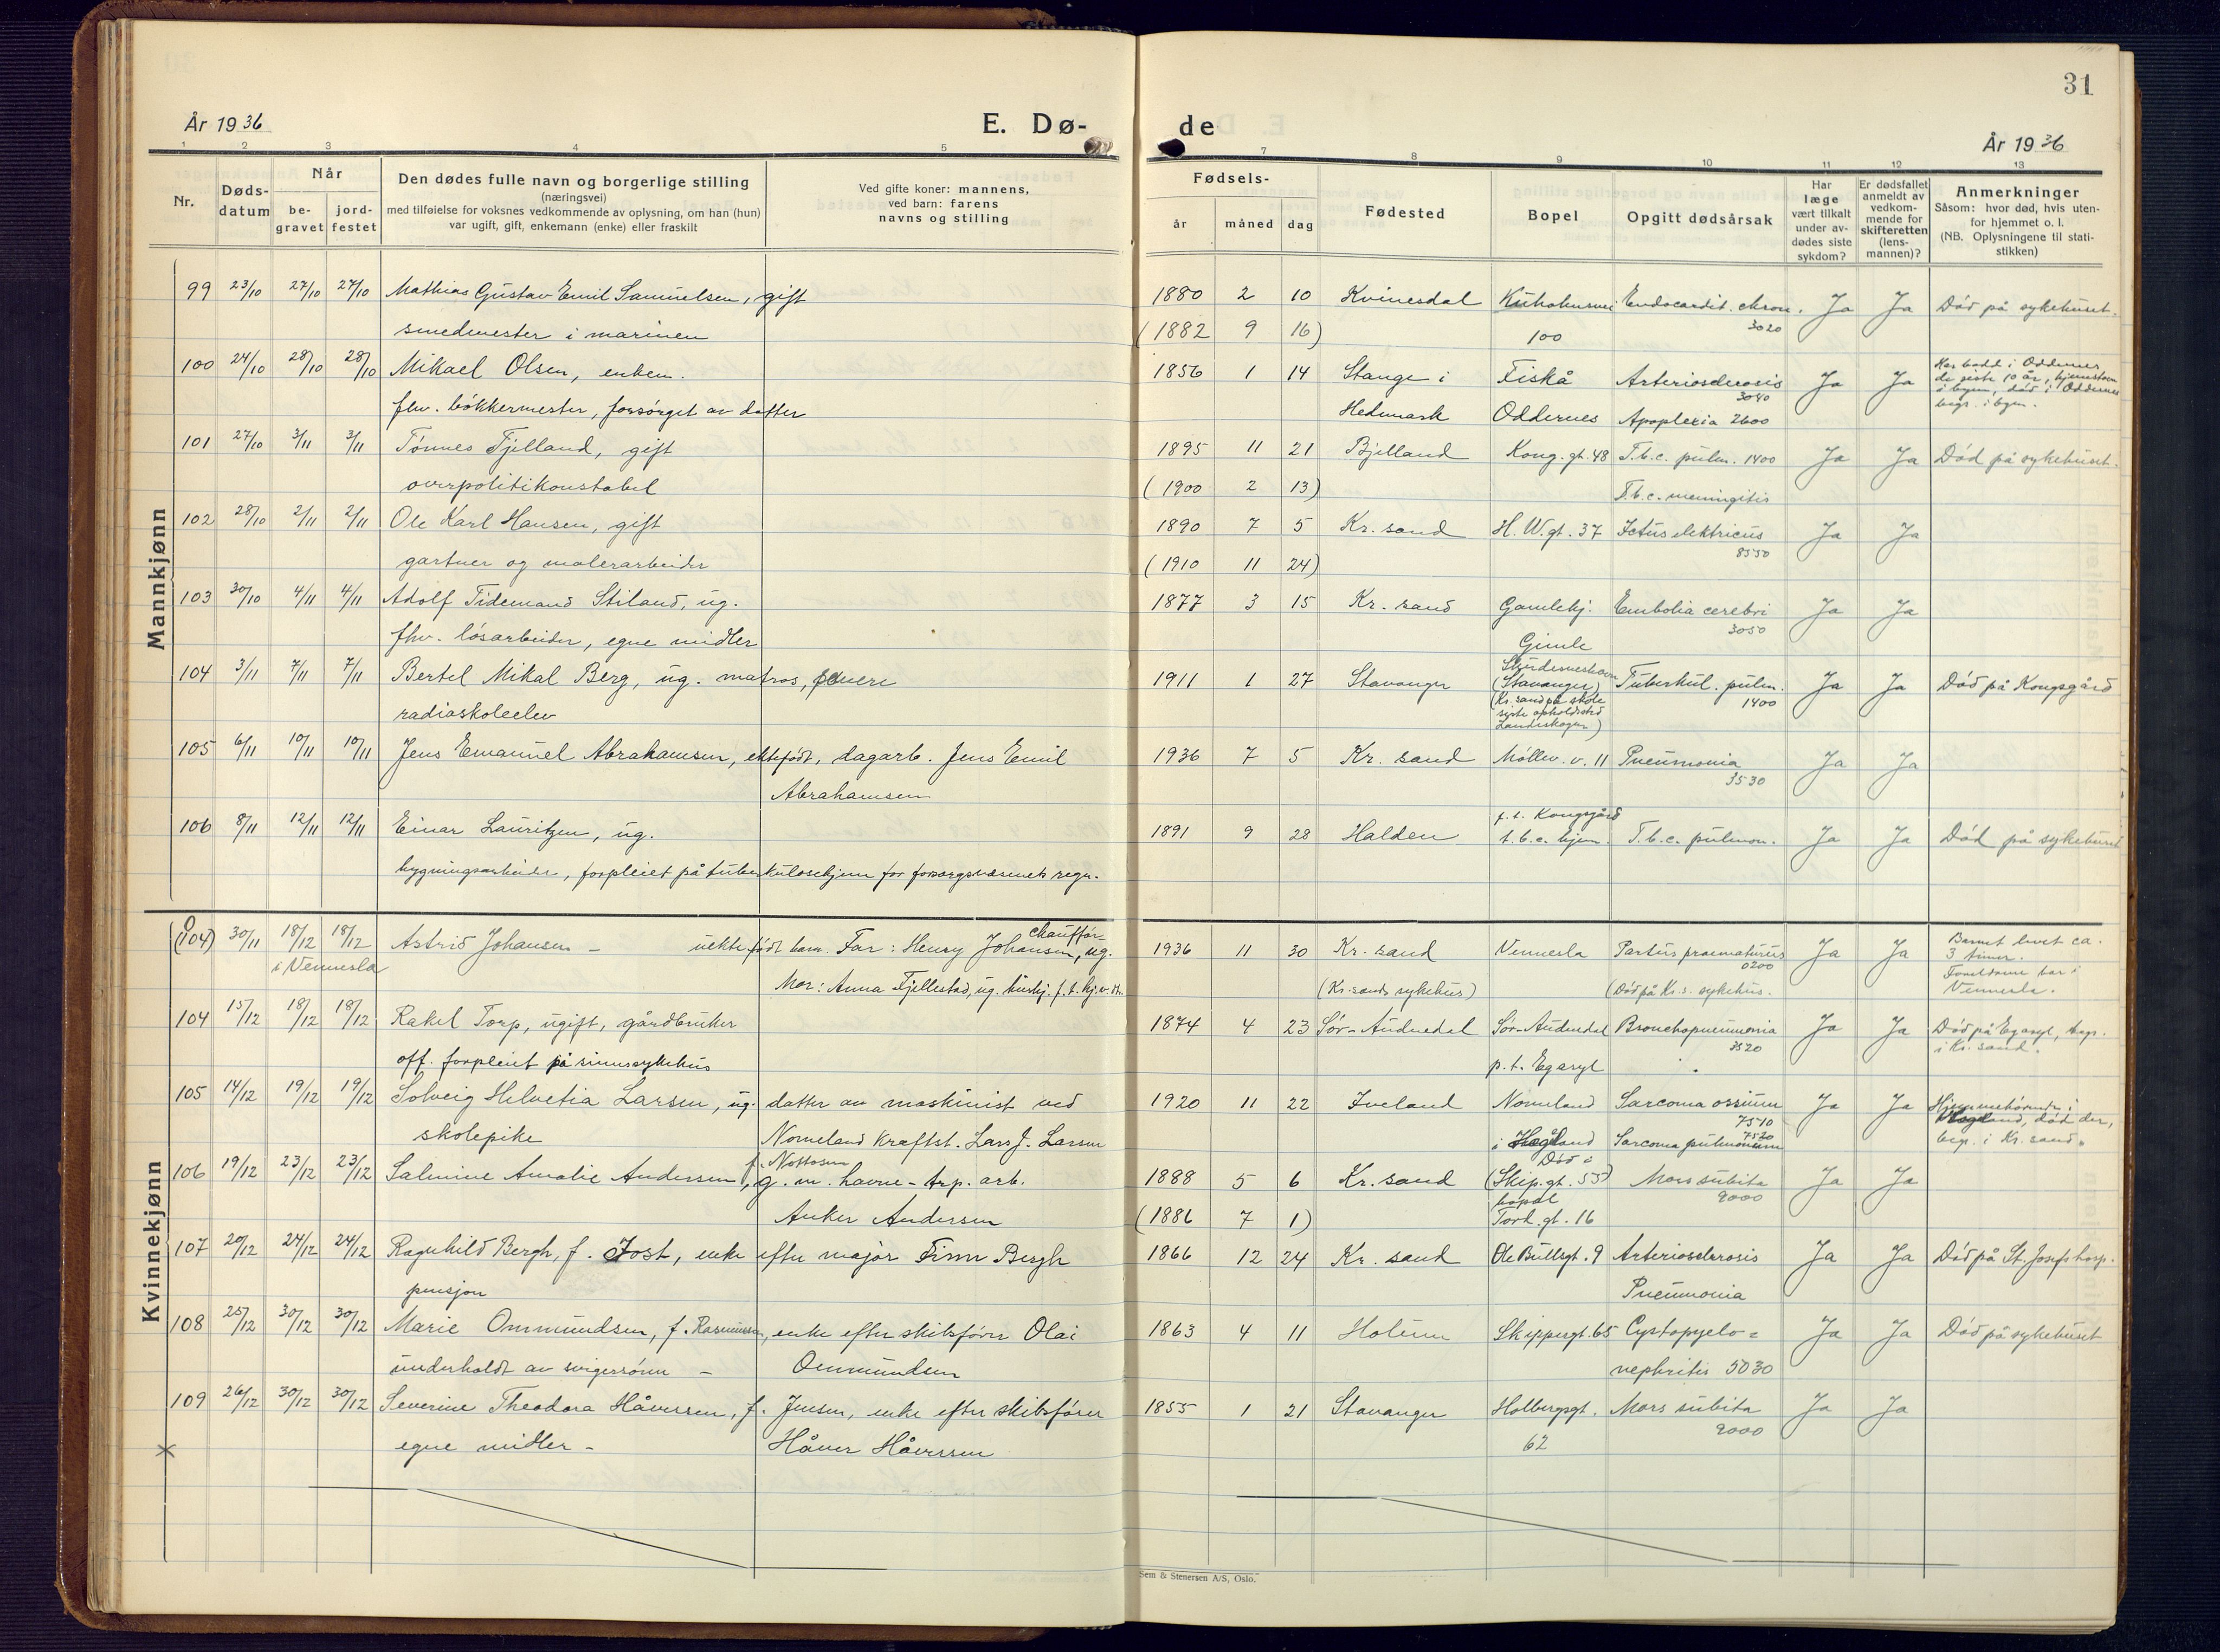 31
År 1936
E. Dø-
de
År 1936
1 2 3 4 5
7 8 9 10 11 12 13
Nr.
Døds-
datum
Når
be-
gravet
jord-
festet
Den dødes fulle navn og borgerlige stilling
(næringsvei)
med tilføielse for voksnes vedkommende av oplysning, om han (hun)
var ugift, gift, enkemann (enke) eller fraskilt
Ved gifte koner: mannens,
ved barn: farens
navns og stilling
Fødsels-
år måned dag
Fødested
Bopel
Opgitt dødsårsak
Har
læge
vært tilkalt
under av-
dødes siste
sykdom?
Er dødsfallet
anmeldt av
vedkom-
mende for
skifteretten
(lens-
mannen)?
Anmerkninger
Såsom: hvor død, hvis uten-
for hjemmet o. l.
(NB. Oplysningene til stati-
stikken)
Mannkjønn
99 23/10 27/10 27/10 Mathias Gustav Emil Samuelsen, gift 1880 2 10 Kvinesdal Kuholmsvei Endocardit. chron. Ja Ja Død på sykehuset.
smedmester i marinen (1882 9 16) 100 3020
100 24/10 28/10 28/10 Mikael Olsen, enkem. 1856 1 14 Stange i Fiskå Arteriosclerosis 3040 Ja Ja Har bodd i Oddernes
de siste 10 år, hjemstavn
i byen, død i Oddernes
begr. i byen.
fhv. bøkkermester, forsørget av datter Hedmark Oddernes Apoplexia 2600
101 27/10 3/11 3/11 Tønnes Fjelland, gift 1895 11 21 Bjelland Kong. gt. 48 T.b.c. pulm. 1400 Ja Ja Død på sykehuset.
overpolitikonstabel (1900 2 13) T.b.c. meningitis
102 28/10 2/11 2/11 Ole Karl Hansen, gift 1890 7 5 Kr. sand H. W. gt. 37 Ictus elektricus Ja Ja
gartner og malerarbeider (1910 11 24) 8550
103 30/10 4/11 4/11 Adolf Tidemand Stiland, ug. 1877 3 15 Kr. sand Gamlehj. Embolia cerebri Ja Ja
fhv. løsarbeider, egne midler Gimle 3050
104 3/11 7/11 7/11 Bertel Mikal Berg, ug. matros, senere 1911 1 27 Stavanger Skudesneshavn
(Stavanger) Tuberkul. pulm. 1400 Ja Ja Død på Kongsgård
radioskoleelev (Kr. sand på skole
siste opholdssted
Landeskogen)
105 6/11 10/11 10/11 Jens Emanuel Abrahamsen, ektefødt, dagarb. Jens Emil 1936 7 5 Kr. sand Møllev. v. 11 Pneumonia Ja Ja
Abrahamsen 3530
106 8/11 12/11 12/11 Einar Lauritzen, ug. 1891 9 28 Halden f. t. Kongsgård
t.b.c. hjem. T.b.c. pulmon. Ja Ja Død på sykehuset
bygningsarbeider, forpleiet på tuberkulosehjem for forsorgsvæsenets regn.
Kvinnekjønn
(104) 30/11 18/12 18/12 Astrid Johansen - uekte født barn. Far: Henry Johansen, chauffør- ug. 1936 11 30 Kr. sand Vennesla Partus praematurus 0200 Ja Ja Barnet levet ca.
3 timer.
Foreldrene bor i
Vennesla.
i Vennesla Mor: Anna Fjellestad, ug. hushj. (Kr. sands sykehus) (Død på Kr. s. sykehus.
104 15/12 18/12 18/12 Rakel Torp, ugift, gårdbruker 1874 4 23 Sør-Audnedal Sør-Audnedal Bronchopneumonia Ja Ja Død på Egasyl, begr.
i Kr. sand.
off. forpleiet på sinnssykehus p. t. Egasyl 3520
105 14/12 19/12 19/12 Solveig Helvetia Larsen, ug. datter av maskinist ved 1920 11 22 Iveland Nomeland Sarcoma ossium 7510 Ja Ja Hjemmehørende i
død der,
begr. i Kr. sand.
skolepike Nomeland Kraftst. Lars J. Larsen i Sarcoma pulmonum 7520
106 19/12 23/12 23/12 Salmine Amalie Andersen, f. Nottosen g. m. havne-trp. arb. 1888 5 6 Kr. sand Død i
(Skip. gt. 55) Mors subita Ja Ja
Anker Andersen (1886 7 1) bopel
Tord. gt. 16 9000
107 20/12 24/12 24/12 Ragnhild Bergh, f. Jost, enke efter major Finn Bergh 1866 12 24 Kr. sand Ole Bullsgt. 9 Arteriosclerosis Ja Ja Død på St. Josefs hosp.
pensjon Pneumonia
108 25/12 30/12 30/12 Marie Ommundsen, f. Rasmussen, enke efter skibsfører Olai 1863 4 11 Holum Skippergt. 65 Cystopyelo- Ja Ja Død på sykehuset
underholdt av svigersønn - Ommundsen nephritis 5030
109 26/12 30/12 30/12 Severine Theodora Håverssen, f. Jensen, enke efter skibsfører 1855 1 21 Stavanger Holbergsgt. Mors subita Ja Ja
egne midler - Håver Håverssen 62 9000
Sem & Stenersen A/S, Oslo.